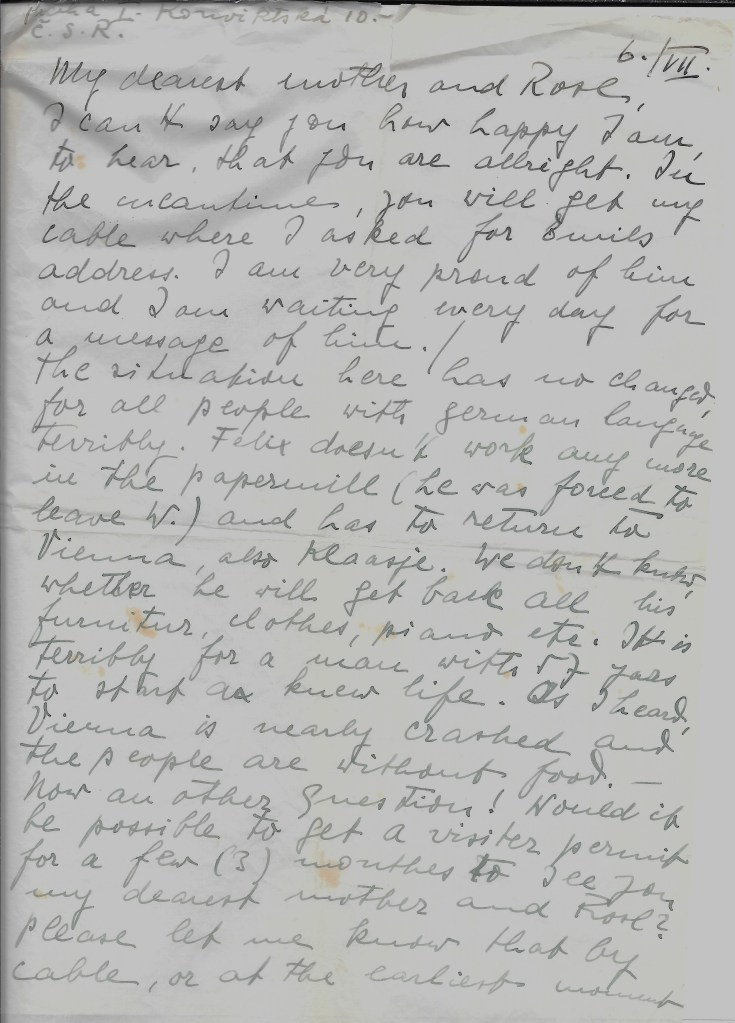 Praha I. Konviktská 10.-
Č.S.R.
6./VII.
My dearest mother and Rosl,
I can't say you how happy I am,
to hear, that you are allright. In
the meantimes, you will get my
cable where I asked for Emils
address. I am very proud of him
and I am waiting every day for
a message of him./
The situation here has no changed,
for all people with german language
terribly. Felix doesn't work any more
in the papermill (he was forced to
leave W.) and has to return to
Vienna, also Klaasje. We don't know,
whether he will get back all his
furnitur, clothes, piano etc. It is
terribly for a man with 57 years
to start a knew life. As I heard,
Vienna is nearly crashed and
the people are without food. —
Now an other question! Would it
be possible to get a visiter permit
for a few (3) monthes to see you
my dearest mother and Rosl?
Please let me know that by
cable, or at the earliest moment